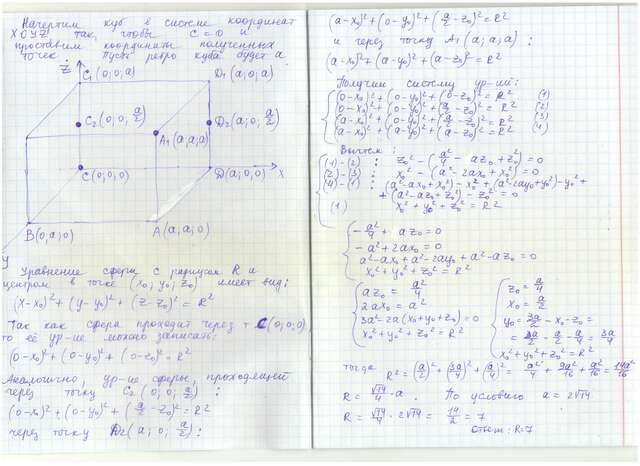 Начертим куб в системе координат
XOYZ так, чтобы C=0 и
проставим координаты полученных
точек. Пусть ребро куба будет a.
Z
C₁(0;0;a)
D₁(a;0;a)
C₂(0;0;a/2)
A₁(a;a;a)
D₂(a;0;a/2)
C(0;0;0)
D(a;0;0)
X
B(0;a;0)
A(a;a;0)
Y
Уравнение сферы с радиусом R и
центром в точке (x₀; y₀; z₀) имеет вид:
(x-x₀)²+(y-y₀)²+(z-z₀)²=R²
Так как сфера проходит через т. C(0;0;0)
то её ур-ие можно записать:
(0-x₀)²+(0-y₀)²+(0-z₀)²=R²
Аналогично, ур-ие сферы, проходящей
через точку C₂(0;0;a/2):
(0-x₀)²+(0-y₀)²+(a/2-z₀)²=R²
через точку D₂(a;0;a/2):
(a-x₀)²+(0-y₀)²+(a/2-z₀)²=R²
и через точку A₁(a;a;a):
(a-x₀)²+(a-y₀)²+(a-z₀)²=R²
Получим систему ур-ий:
(0-x₀)²+(0-y₀)²+(0-z₀)²=R² (1)
(0-x₀)²+(0-y₀)²+(a/2-z₀)²=R² (2)
(a-x₀)²+(0-y₀)²+(a/2-z₀)²=R² (3)
(a-x₀)²+(a-y₀)²+(a-z₀)²=R² (4)
Вычтем:
(1)-(2): z₀²-(a²/4-az₀+z₀²)=0
(2)-(3): x₀²-(a²-2ax₀+x₀²)=0
(4)-(1): (a²-2ax₀+x₀²)-x₀²+(a²-2ay₀+y₀²)-y₀²+
+(a²-2az₀+z₀²)-z₀²=0
(1) x₀²+y₀²+z₀²=R²
-a²/4+az₀=0
-a²+2ax₀=0
a²-2ax₀+a²-2ay₀+a²-2az₀=0
x₀²+y₀²+z₀²=R²
az₀=a²/4
2ax₀=a²
3a²-2a(x₀+y₀+z₀)=0
x₀²+y₀²+z₀²=R²
z₀=a/4
x₀=a/2
y₀=3a/2-x₀-z₀=
=3a/2-a/2-a/4=3a/4
x₀²+y₀²+z₀²=R²
тогда R²=(a/2)²+(3a/4)²+(a/4)²=a²/4+9a²/16+a²/16=14a²/16
R=√14/4·a. По условию a=2√14
R=√14/4·2√14=14/2=7
Ответ: R=7